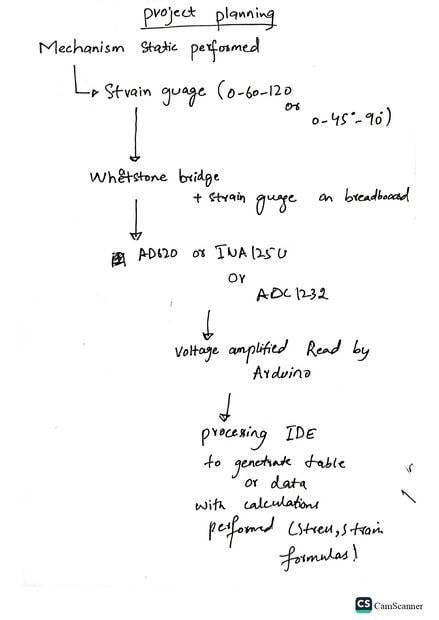 project planning
Mechanism static performed
Strain guage (0-60-120
or
0-45°-90°)
Whetstone bridge
+ strain guage on breadboard
AD620 or INA125U
or
ADC1232
Voltage amplified Read by
Arduino
processing IDE
to genetrate table
or data
with calculations
performed (stress, strain
formulas)
CS CamScanner